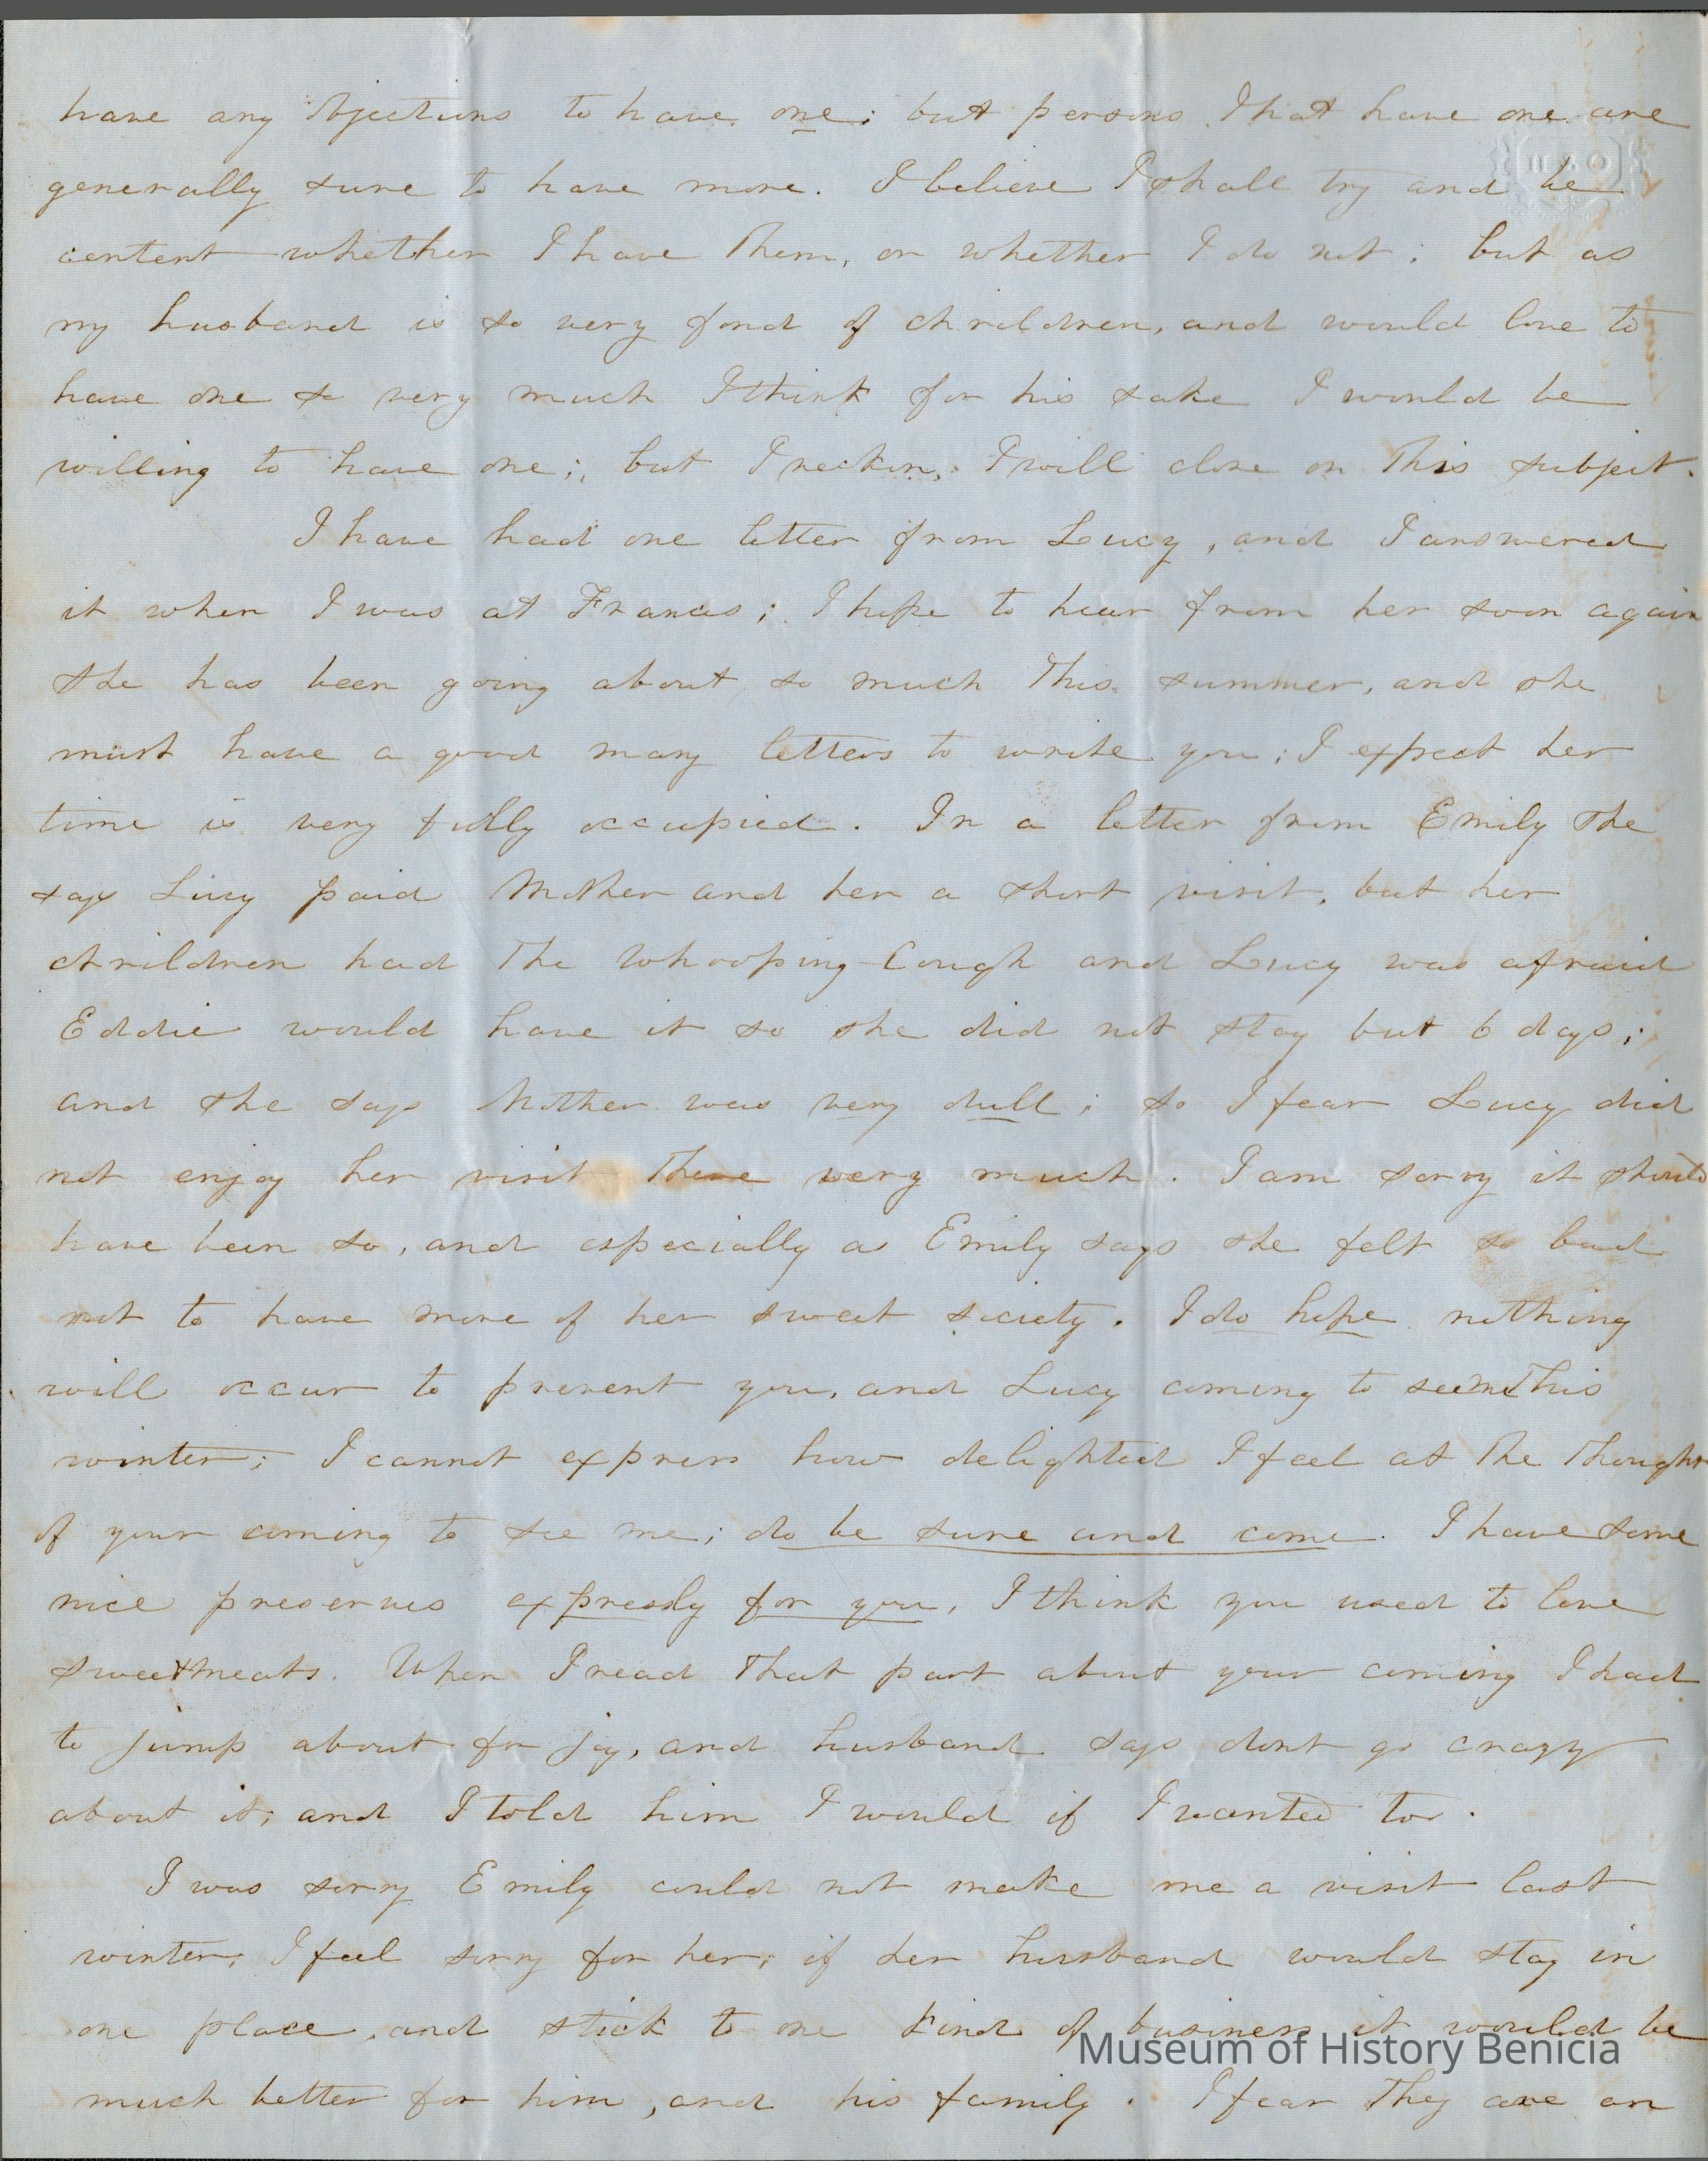 have any objections to have one; but persons that have one are
generally sure to have more. I believe I shall try and be
content whether I have them, or whether I do not; but as
my husband is so very fond of children, and would love to
have one so very much I think for his sake I would be
willing to have one; but I reckon, I will close on this subject.
I have had one letter from Lucy, and I answered
it when I was at Frances; I hope to hear from her soon again
she has been going about so much this summer, and she
must have a good many letters to write you; I expect her
time is very fully occupied. In a letter from Emily she
says Lucy paid Mother and her a short visit, but her
children had the Whooping-Cough and Lucy was afraid
Eddie would have it so she did not stay but 6 days;
and she says Mother was very dull; so I fear Lucy did
not enjoy her visit there very much. I am sorry it should
have been so, and especially as Emily says she felt so bad
not to have more of her sweet society. I do hope nothing
will occur to prevent you, and Lucy coming to see me this
winter; I cannot express how delighted I feel at the thought
of your coming to see me; do be sure and come. I have some
nice preserves expressly for you, I think you used to love
sweetmeats. When I read that part about your coming I had
to jump about for joy, and husband says dont go crazy
about it; and I told him I would if I wanted to.
I was sorry Emily could not make me a visit last
winter; I feel sorry for her; if her husband would stay in
one place, and stick to one kind of business it would be
much better for him, and his family. I fear they are on
Museum of History Benicia